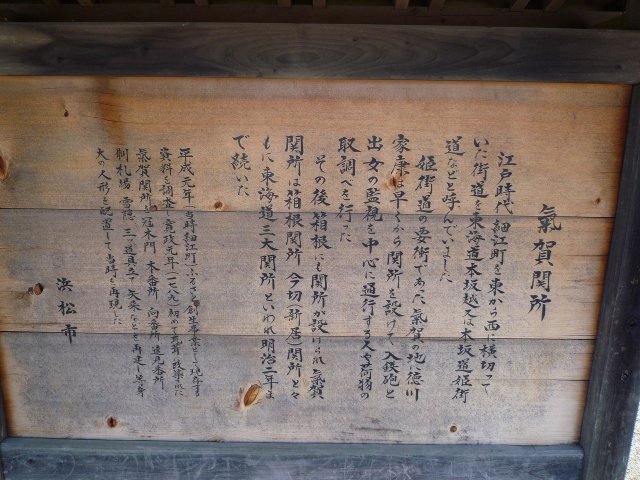 氣賀関所
江戸時代 細江町を東から西に横切って
いた街道を東海道本坂越又は本坂道姫街
道などと呼んでいました
姫街道の要衝であった氣賀の地に徳川
家康は早くから関所を設けて入鉄砲と
出女の監視を中心に通行する人や荷物の
取調べを行った
その後箱根にも関所が設けられ氣賀
関所は箱根関所 今切(新居)関所と々
もに東海道三大関所といわれ明治二年ま
で続いた
平成元年 当時細江町 ふるさと創生事業として現存する
資料を調査し寛政元年(一七八九)初めて
氣賀関所を冠木門 本番所 向番所 遠見番所
制札場 雪隠 三つ道具 矢来などを再建し
大の人形を配置して当時を再現した
浜松市